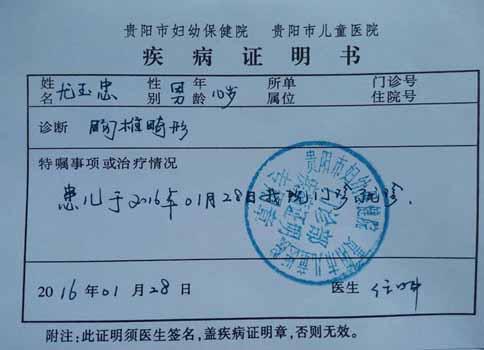 贵阳市妇幼保健院 贵阳市儿童医院
疾病证明书
姓名 尤玉忠 性别 男 年龄 10岁 所属单位 门诊号 住院号
诊断 胸椎畸形
特嘱事项或治疗情况
患儿于2016年01月28日我院门诊就诊.
贵阳市妇幼保健院 贵阳市儿童医院
2016年01月28日 医生
附注:此证明须医生签名,盖疾病证明章,否则无效。